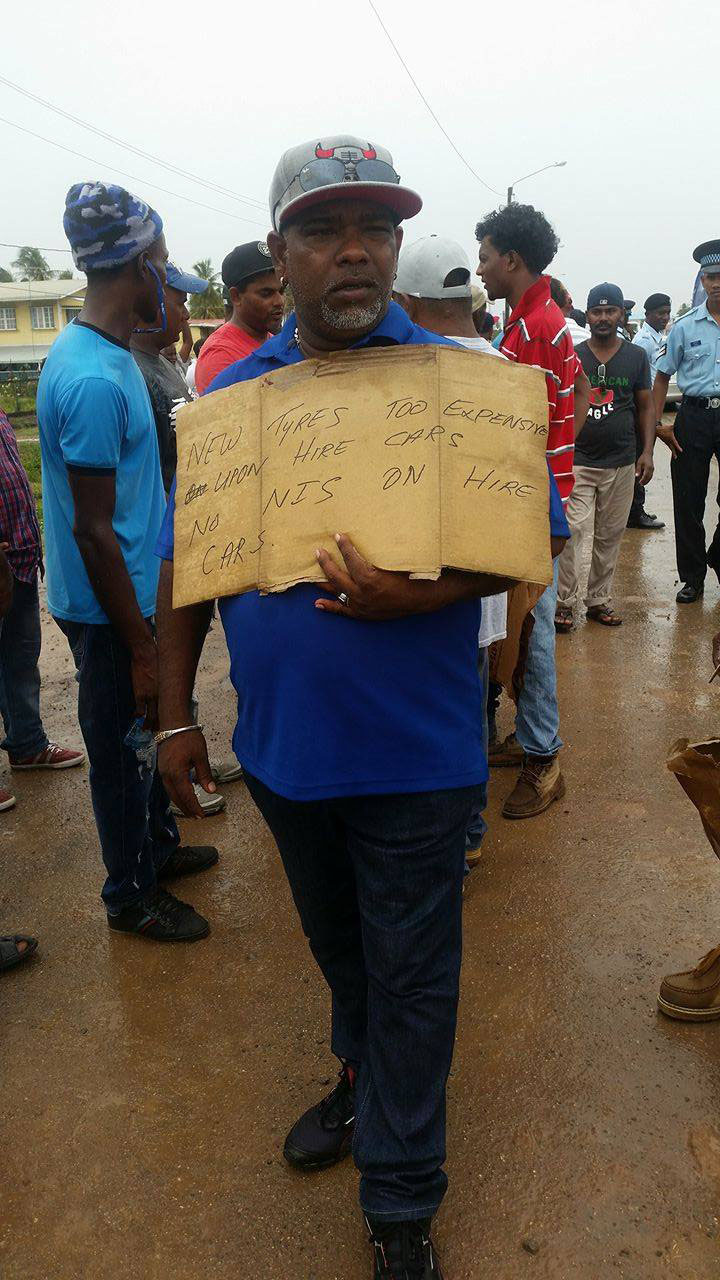 NEW TYRES TOO EXPENSIVE
UPON HIRE CARS
NO NIS ON HIRE
CARS.
AMERICAN
EAGLE